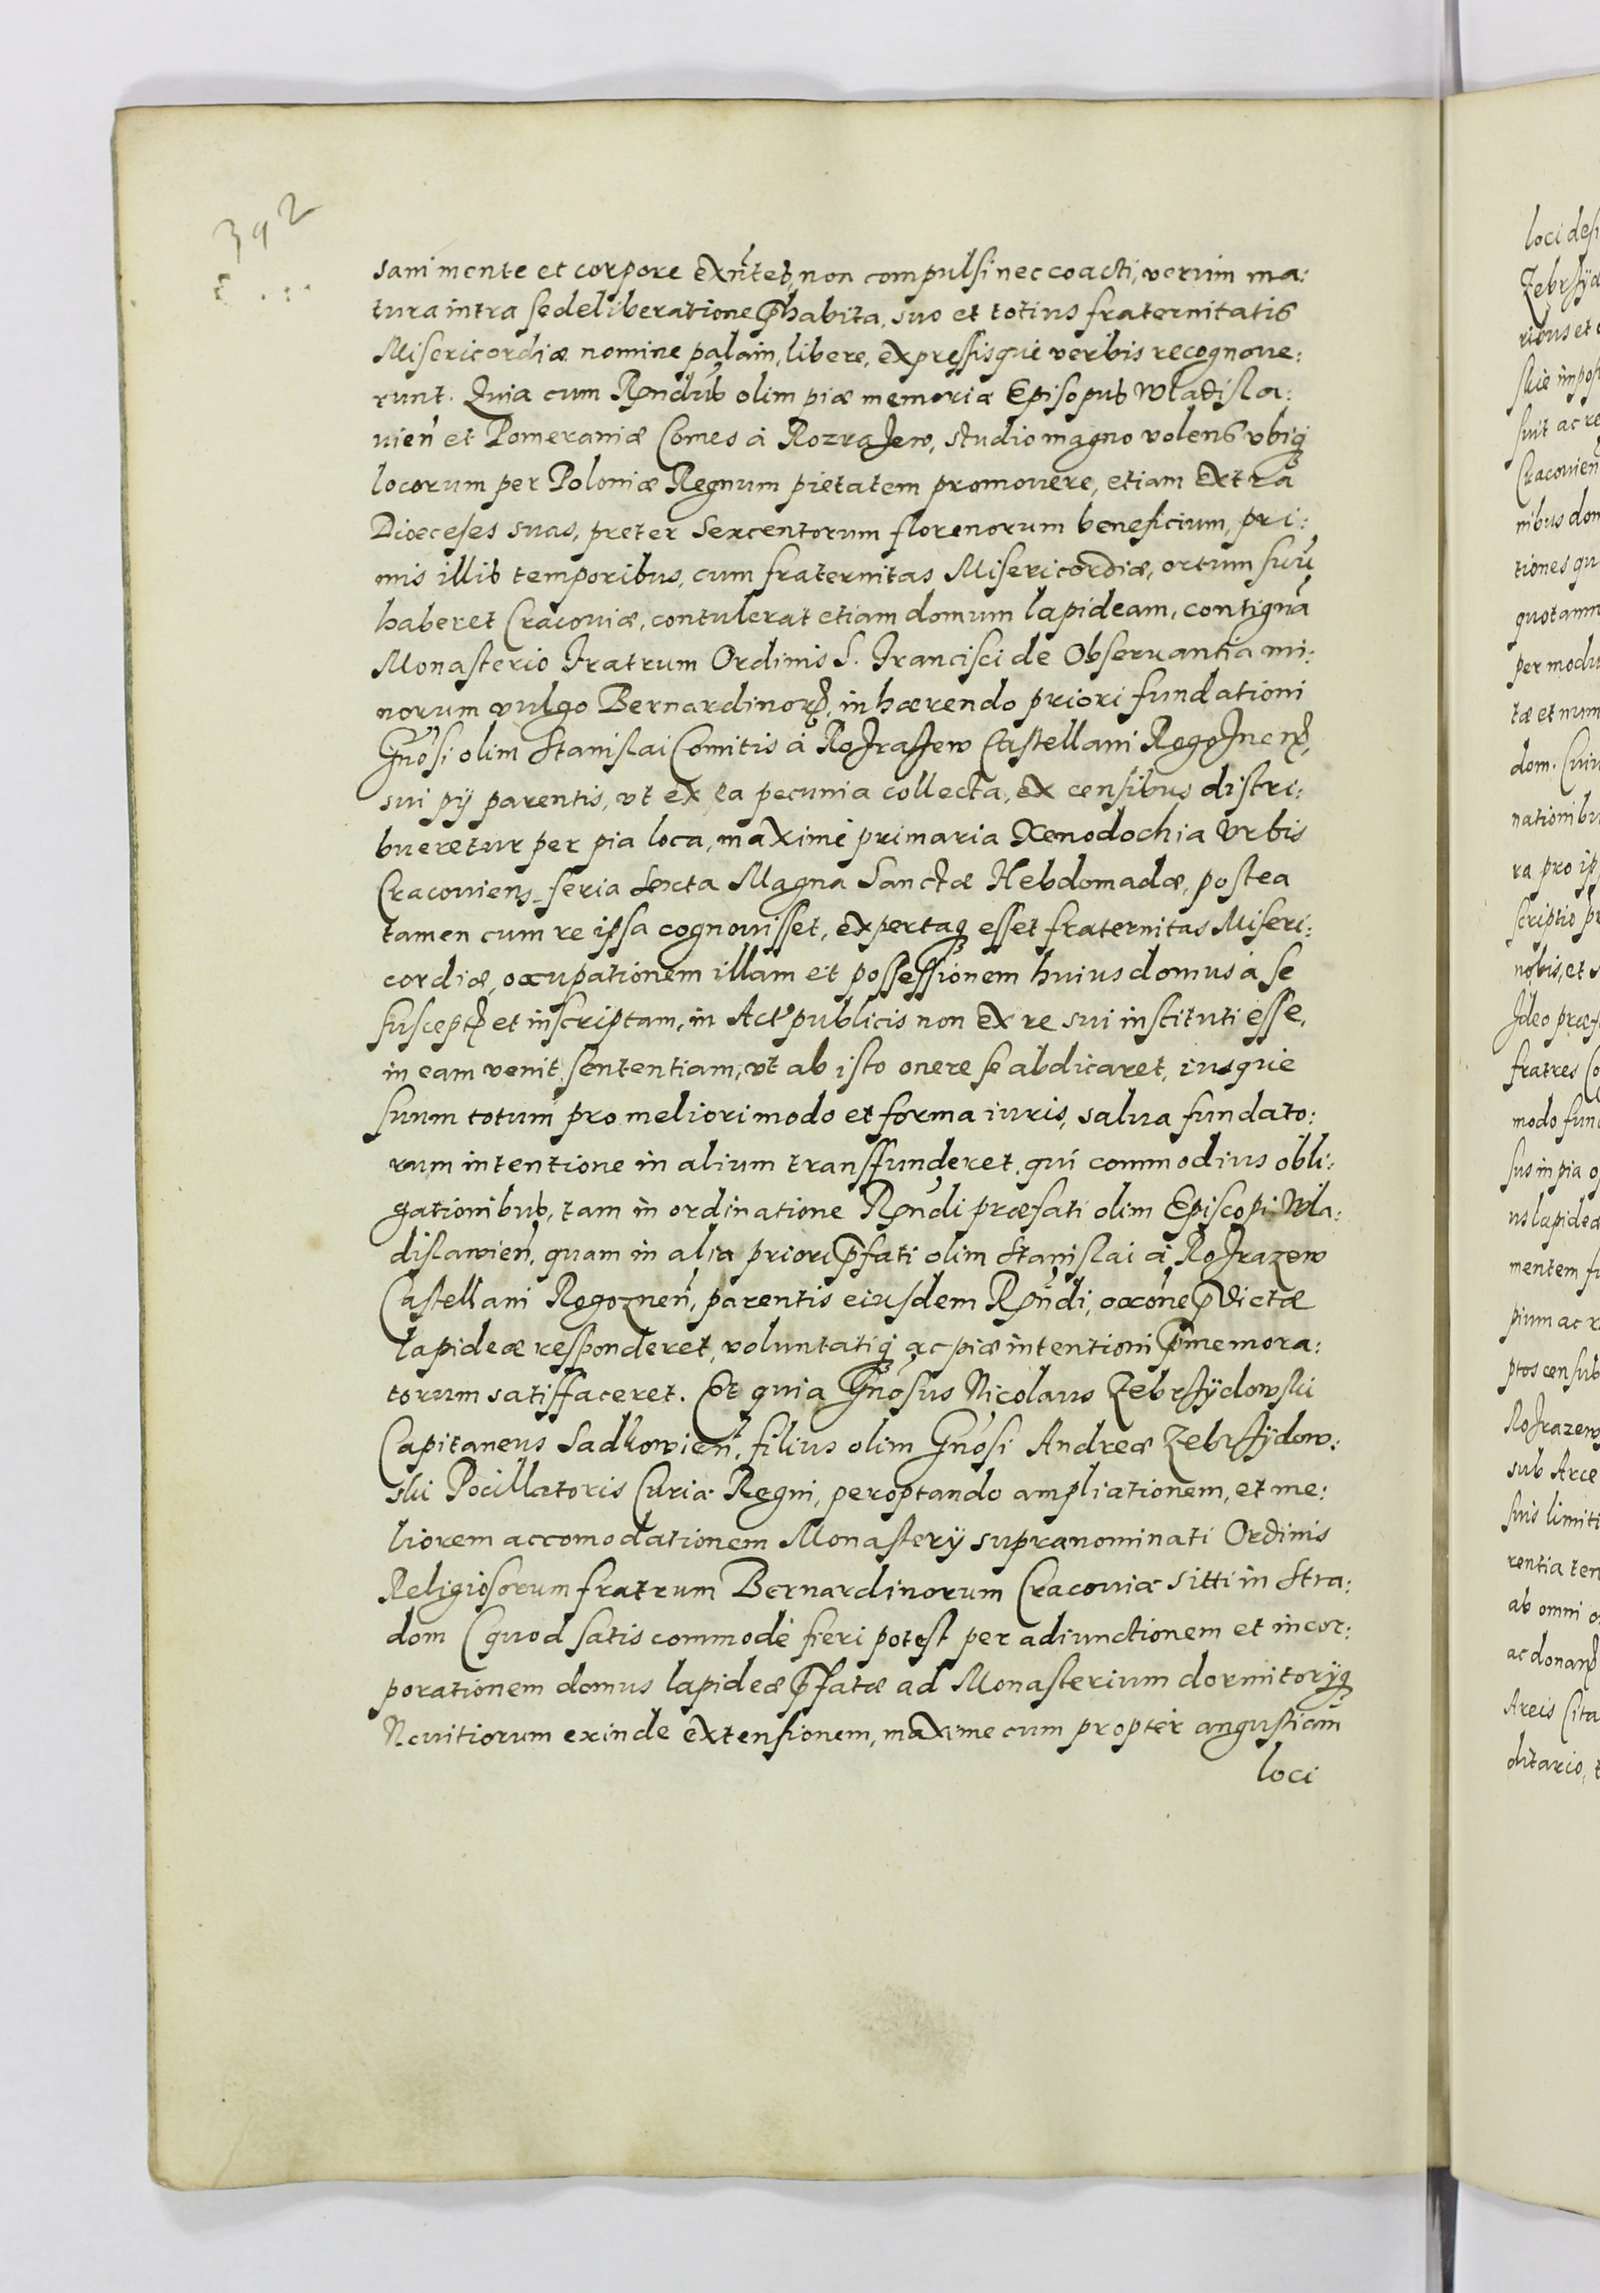 392
sani mente et corpore exn̄tes, non compulsi nec coacti, verum ma:
tura intra se deliberatione p̄habita, suo et totius fraternitatis
Misericordiæ nomine palam, libere, expressisque verbis recognoue:
runt. Quia cum Rn̄dus olim piæ memoriæ Episopus Wladisla:
uien̄ et Pomeraniæ Comes à Rozrazew, studio magno volens vbiq
locorum per Poloniæ Regnum pietatem promouere, etiam extra
Dioeceses suas, preter Sexcentorum florenorum beneficium, pri:
mis illis temporibus, cum fraternitas Misericordiæ, ortum suū
haberet Cracouiæ, contulerat etiam domum lapideam, contiguā
Monasterio Fratrum Ordinis S. Francisci de Obseruantia mi:
norum vulgo Bernardinorꝝ, inhærendo priori fundationi
Gn̄osi olim Stanislai Comitis à Rozrazew Castellani Rogoznen̄,
sui pij parentis, vt ex ea pecunia collecta, ex censibus distri:
bueretur per pia loca, maximè primaria Xenodochia Vrbis
Cracouiens. feria Sexta Magna Sanctæ Hebdomadæ, postea
tamen cum re ipsa cognouisset, expertaq esset fraternitas Miseri:
cordiæ, occupationem illam et possessionem huius domus à se
susceptꝭ et inscriptam, in Actꝭ publicis non ex re sui instituti esse,
in eam venit sententiam, vt ab isto onere se abdicaret, iusque
suum totum pro meliori modo et forma iuris, salua fundato:
rum intentione in alium transfunderet, qui commodius obli:
gationibus, tam in ordinatione Rn̄di præfati olim Episcopi Wla:
dislawien̄, quam in alia priori p̄fati olim Stanislai à Rozrazew
Castellani Rogoznen̄, parentis eiusdem Rn̄di, occōne p̄dictæ
lapideæ responderet, voluntatiq ac piæ intentioni p̄memora:
torum satisfaceret. Et quia Gn̄osus Nicolaus Zebrzÿdowski
Capitaneus Sadkowien̄, filius olim Gn̄osi Andreæ Zebrzÿdow:
ski Pocillatoris Curiæ Regni, peroptando ampliationem, et me:
liorem accomodationem Monasterij supranominati Ordinis
Religiosorum fratrum Bernardinorum Cracouiæ sitti in Stra:
dom (quod satis commodè fieri potest per adiunctionem et incor:
porationem domus lapideæ p̄fatæ ad Monasterium dormitorÿq
Nouitiorum exinde extensionem, maxime cum propter angustiam
loci